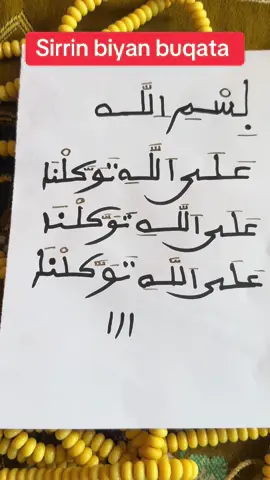 Sirrin biyan buqata
بِسْمِ اللَّه
عَلَى اللَّهِ تَوَكَّلْنَا
عَلَى اللَّهِ تَوَكَّلْنَا
عَلَى اللَّهِ تَوَكَّلْنَا
١١١